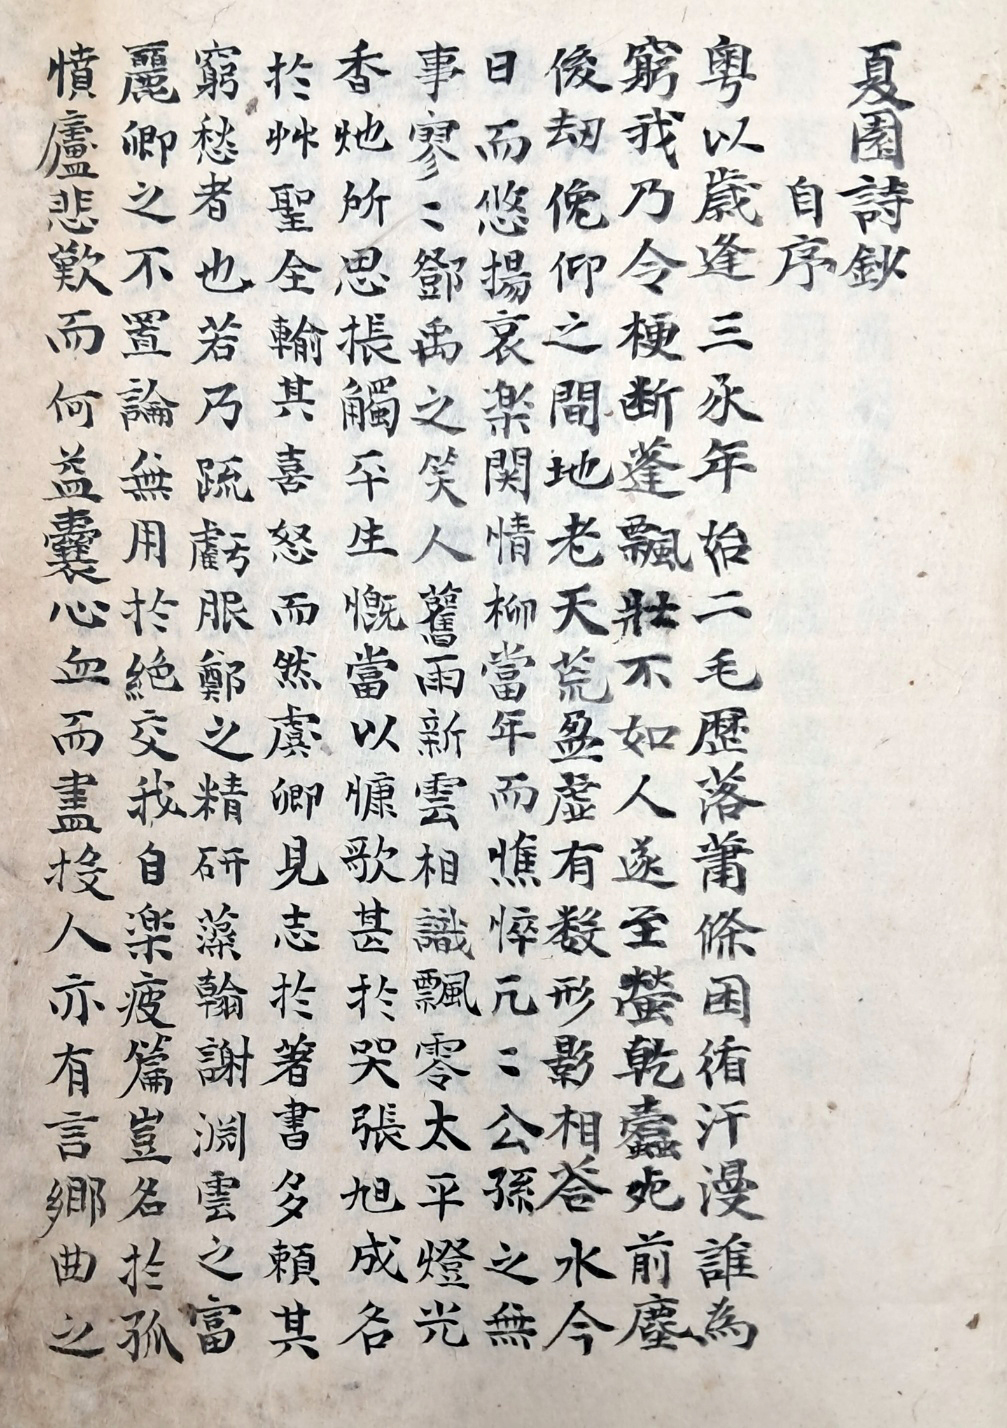 夏園詩鈔
自序
粤以歳逢三豕年始二毛歴落蕭條困循汗漫誰為
窮我乃令梗断蓬飄壯不如人遂至螢乾蠧死前塵
後劫俛仰之間地老天荒盈虚有数形影相荅水今
日而悠揚哀楽関情柳當年而憔悴兀〻公孫之無
事寥〻鄧禹之笑人舊雨新雲相識飄零太平燈光
香灺所思振觸平生慨當以慷歌甚於哭張旭成名
於艸聖全輸其喜怒而然虞卿見志於著書多頼其
窮愁者也若乃䟽虧服鄭之精研藻翰謝淵雲之富
麗卿之不置論無用於絶交我自楽疲篇豈名於孤
憤廬悲歎而何益囊心血而盡投人亦有言鄉曲之